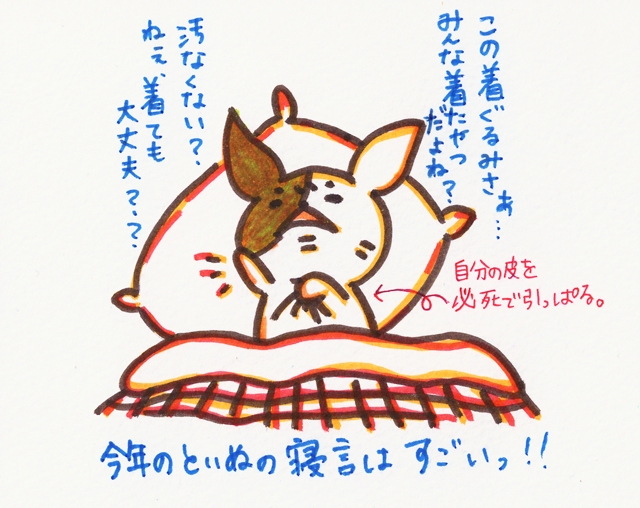 この着ぐるみさぁ…
みんな着たやつ
だよね?
汚なくない?
ねぇ、着ても
大丈夫???
自分の皮を
必死で引っぱる。
今年のといぬの寝言はすごいっ!!